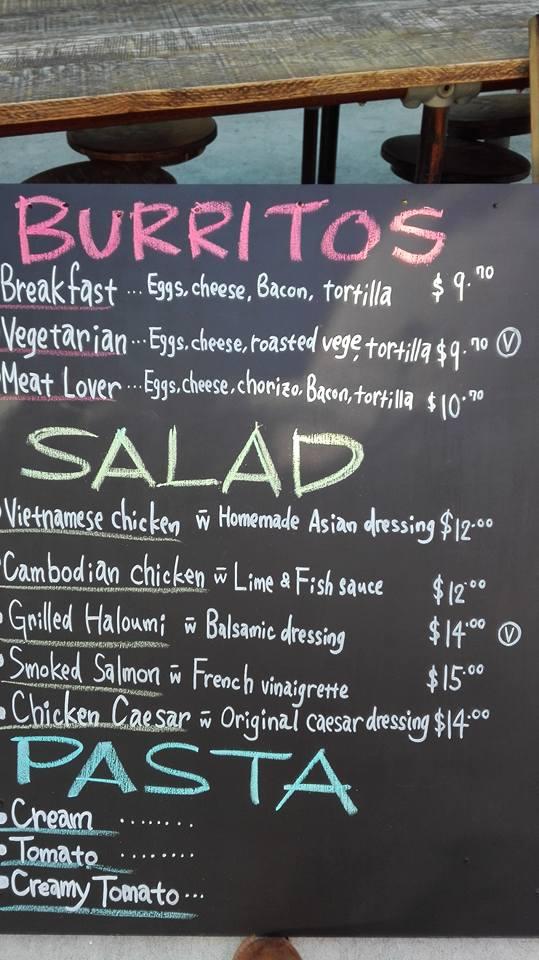 BURRITOS
Breakfast ... Eggs, cheese, Bacon, tortilla $9.70
Vegetarian ... Eggs, cheese, roasted vege, tortilla $9.70 V
Meat Lover ... Eggs, cheese, chorizo, Bacon, tortilla $10.70
SALAD
Vietnamese chicken w̄ Homemade Asian dressing $12.00
Cambodian chicken w̄ Lime & Fish sauce $12.00
Grilled Haloumi w̄ Balsamic dressing $14.00 V
Smoked Salmon w̄ French vinaigrette $15.00
Chicken Caesar w̄ Original caesar dressing $14.00
PASTA
Cream ........
Tomato ........
Creamy Tomato ...